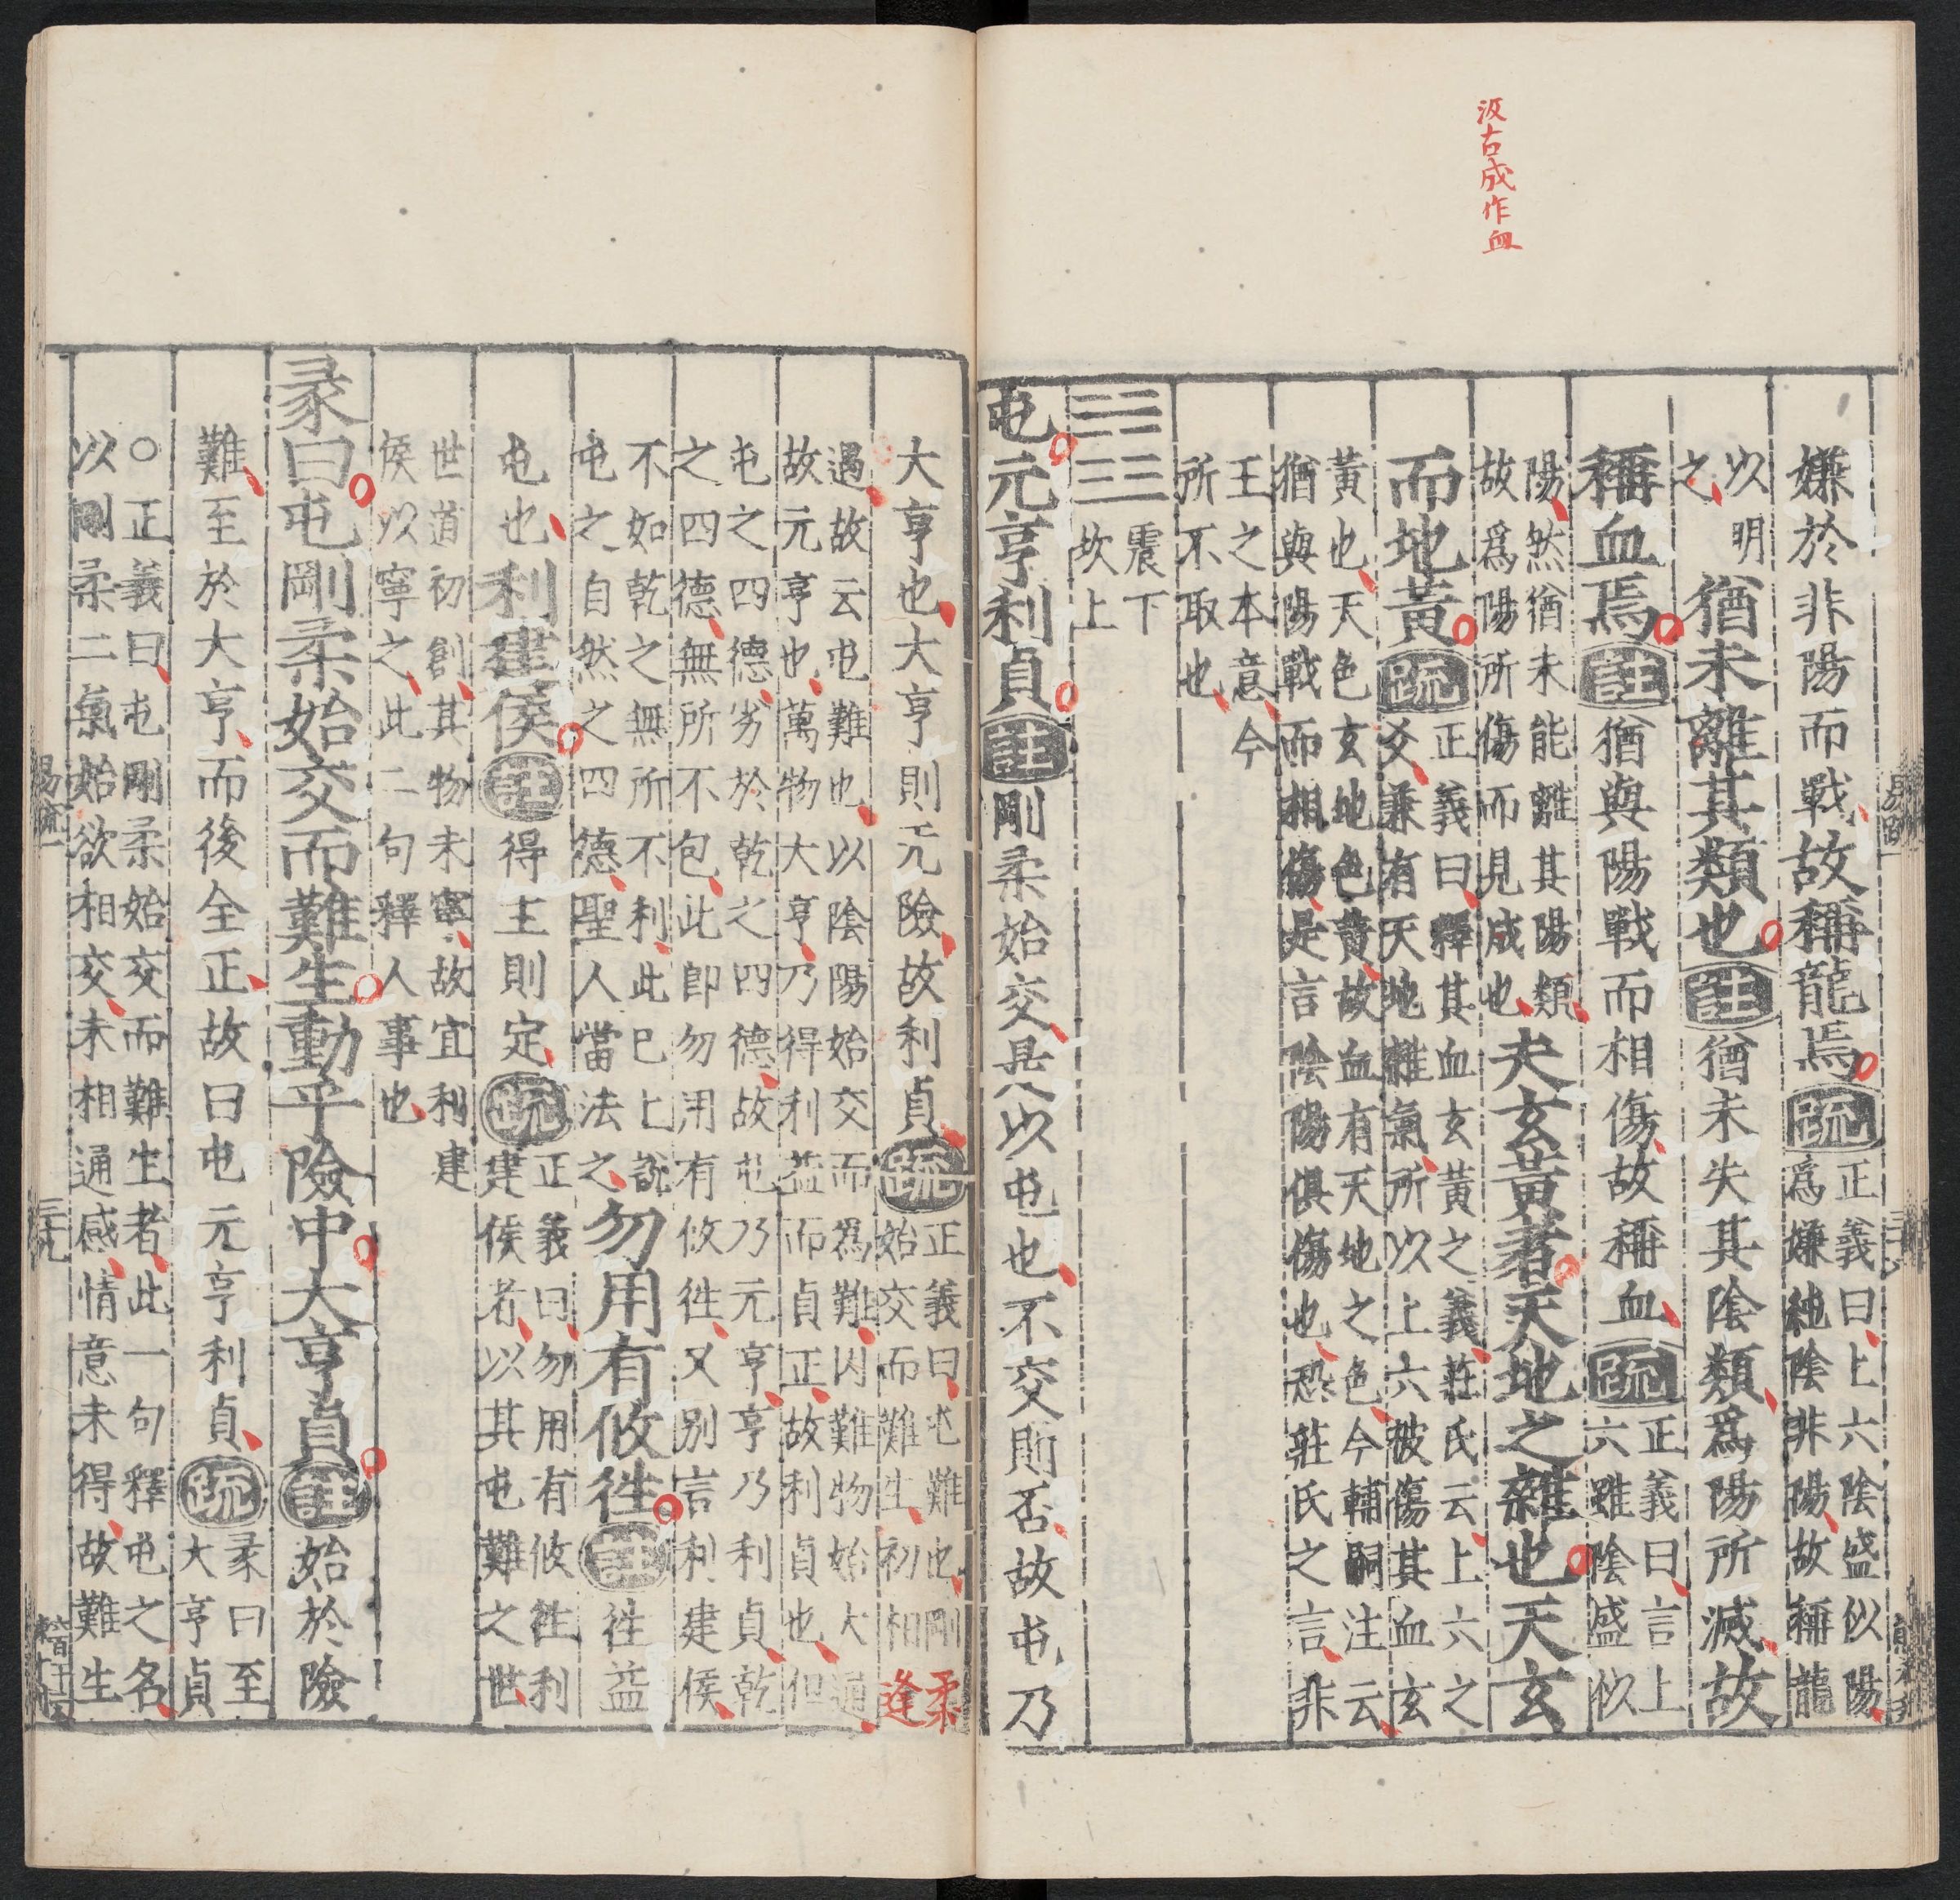 汲古成作血
嫌於非陽而戰故稱龍焉疏正義曰上六陰盛似陽
爲嫌純陰非陽故稱龍
以明
之
猶未離其類也註猶未失其陰類爲陽所滅故
稱血焉註猶與陽戰而相傷故稱血疏正義曰言上
六雖陰盛似
陽然猶未能離其陽類
故爲陽所傷而見成也
夫玄黃者天地之雜也天玄
而地黃疏正義曰釋其血玄黃之義莊氏云上六之
爻兼有天地雜氣所以上六被傷其血玄
黃也天色玄地色黃故血有天地之色今輔嗣注云
猶與陽戰而相傷是言陰陽俱傷也恐莊氏之言非
王之本意今
所不取也
震下
坎上
屯元亨利貞註剛柔始交是以屯也不交則否故屯乃
大亨也大亨則无險故利貞疏正義曰屯難也剛柔
始交而難生初相逢
遇故云屯難也以陰陽始交而爲難因難物始大通
故元亨也萬物大亨乃得利益而貞正故利貞也但
屯之四德劣於乾之四德故屯乃元亨亨乃利貞乾
之四德無所不包此即勿用有攸往又别言利建侯
不如乾之無所不利此已上說
屯之自然之四德聖人當法之
勿用有攸往註往益
屯也利建侯註得主則定疏正義曰勿用有攸往利
建侯者以其屯難之世
世道初創其物未寧故宜利建
侯以寧之此二句釋人事也
彖曰屯剛柔始交而難生動乎險中大亨貞註始於險
難至於大亨而後全正故曰屯元亨利貞疏彖曰至
大亨貞
○正義曰屯剛柔始交而難生者此一句釋屯之名
以剛柔二氣始欲相交未相通感情意未得故難生